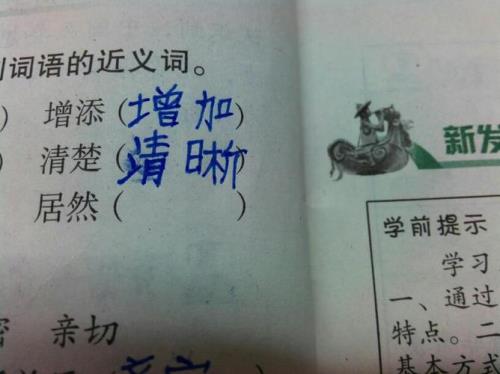 词语的近义词。
) 增添(增加)
) 清楚(靖晰)
居然( )
密 亲切
新发
学前提示
学习
一、通过
特点。二
基本方式